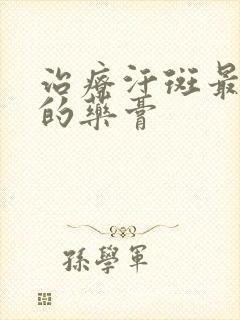 治療汗斑最
的藥膏
孫學軍